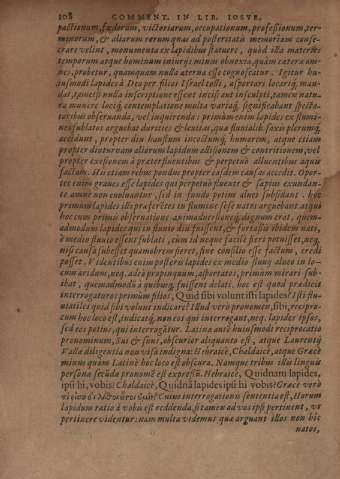 108 COMMENT. IN LIB. IOSVE,
pactionum, fœderum, victoriarum, occupationum, professionum, ter-
minorum, & aliarum rerum quas ad posteritatis memoriam conse-
crare velint, monumenta ex lapidibus statuere, quòd illa materies
temporum atque hominum iniurijs minus obnoxia, quàm cæteræ om-
nes, probetur, quamquam nulla æterna esse cognoscatur. Igitur hu-
iusmodi lapides à Deo per filios Israel tolli, asportari locariq́; man-
dat, tametsi nulla inscriptione essent incisi aut insculpti, tamen natu-
ra munere locoq́; contemplatione multa variaq́; significabant specta-
toribus obseruanda, vel inquirenda: primùm enim lapides ex flumi-
ne sublatos arguebat durities & leuitas, qua fluuialibus saxis plerumq́;
accidunt, propter diu haustum inconditumq́; humorem, atque etiam
propter diuturnam aliorum lapidum allisionem & contritionem, vel
propter exesionem à prætersluentibus & perpetuò alluentibus aquis
factam. His etiam rebus pondus propter eâdem causas accedit. Opor-
tet enim graues esse lapides qui perpetuò fluenti & sæpius exundan-
te amne non euoluantur, sed in fundo potius alueo subsidant. hos
primum lapides illo præferentes in fluminis sese natos arguebant atqui
hoc cum primis obseruatione animaduersioneq́; dignum erat, quem-
admodum lapides qui in fluuio diu fuissent, & fortassis ibidem nati,
è medio fluuio essent sublati, cum id neque facile fieri potuisset, neq́;
nisi causa subesset quamobrem fieret, sine consilio esse factum, credi
posset. Videntibus enim posteris lapides ex medio fluuij alueo in lo-
cum aridum, neq́; adeò propinquum, asportatos, primùm mirari sub-
ibat, quemadmodum à quibusq́; fuissent delati. hoc est quod prædicit
interrogaturos primùm filios, Quid sibi volunt isti lapides? Isti flu-
uiatiles quid sibi volunt indicare? Illud verò pronomen, sibi, recipro-
cum hoc loco est, indicatq́; non eos qui interrogant, neq́; lapides ipsos,
sed eos potius, qui interrogātur. Latina autē huiusmodi reciprocatio
pronominum, Sui & suus, obscurior aliquanto est, atque Laurentij
Valla diligentia non visa indigna: Hebraicè, Chaldaicè, atque Græcè
minus quàm Latinè hoc loco est obscura. Namque tribus illis lingua
persona secūda pronomē est expressū. Hebraicè, Quidnam lapides,
ipsi hi, vobis? Chaldaicè, Quidnā lapides ipsi hi vobis? Græcè verò
Cuius interrogationis sententia est, Horum
lapidum ratio à vobis est reddenda, si tamen ad vos ipsi pertinent, vt
pertinere videntur: nam multa videmus quæ arguant illos non hic
natos,